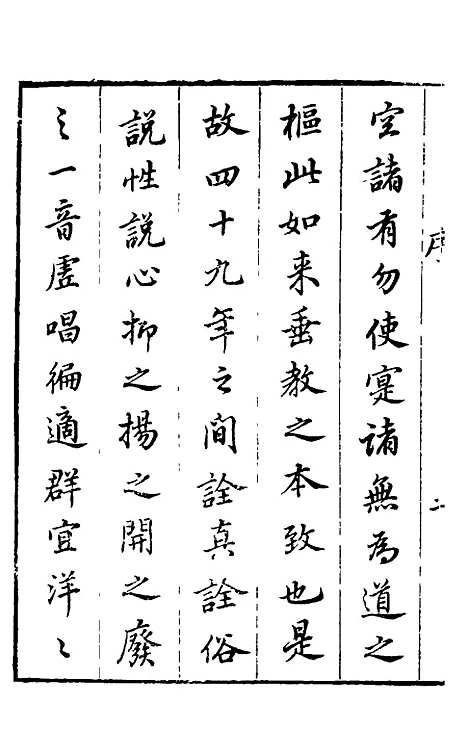 序
二
空諸有勿使寔諸無為道之
樞此如来垂教之本致也是
故四十九年之間詮真詮俗
說性說心抑之揚之開之廢
之一音虛唱徧適群宜洋〻